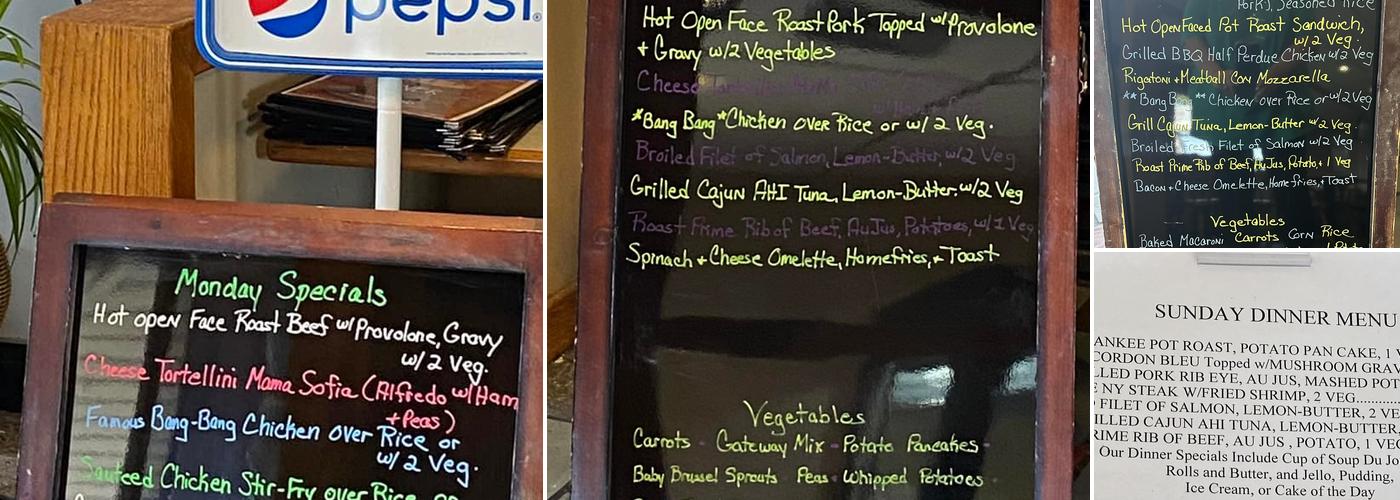 pepsi
Monday Specials
Hot open Face Roast Beef w/Provolone, Gravy
w/ 2 Veg.
Cheese Tortellini Mama Sofia (Alfredo w/Ham
+Peas)
Famous Bang-Bang Chicken over Rice or
w/ 2 Veg.
Sauteed Chicken Stir-Fry over Rice or
Hot Open Face Roast Pork Topped w/Provolone
+ Gravy w/2 Vegetables
Cheese
*Bang Bang*Chicken over Rice or w/ 2 Veg.
Broiled Filet of Salmon, Lemon-Butter, w/2 Veg
Grilled Cajun AHI Tuna, Lemon-Butter. w/2 Veg
Roast Prime Rib of Beef, Au Jus, Potatoes, w/1 Veg
Spinach + Cheese Omelette, Homefries, + Toast
Vegetables
Carrots - Gateway Mix - Potato Pancakes -
Baby Brussel Sprouts Peas - Whipped Potatoes -
Pork), Seasoned Rice
Hot Open Faced Pot Roast Sandwich,
w/2 Veg
Grilled BBQ Half Perdue Chicken w/2 Veg
Rigatoni + Meatball Con Mozzarella
**Bang Bang** Chicken over Rice or w/2 Veg
Grill Cajun Tuna, Lemon-Butter w/2 Veg.
Broiled Fresh Filet of Salmon w/2 Veg
Roast Prime Rib of Beef, Au Jus, Potato, + 1 Veg
Bacon + Cheese Omelette, Home fries, + Toast
Vegetables
Baked Macaroni Carrots Corn Rice
SUNDAY DINNER MENU
ANKEE POT ROAST, POTATO PAN CAKE, 1 V
CORDON BLEU Topped w/MUSHROOM GRAV
LLED PORK RIB EYE, AU JUS, MASHED POT
E NY STEAK W/FRIED SHRIMP, 2 VEG.........
FILET OF SALMON, LEMON-BUTTER, 2 VE
ILLED CAJUN AHI TUNA, LEMON-BUTTER,
RIME RIB OF BEEF, AU JUS , POTATO, 1 VE
Our Dinner Specials Include Cup of Soup Du Jo
Rolls and Butter, and Jello, Pudding,
Ice Cream, or Cake of the Day